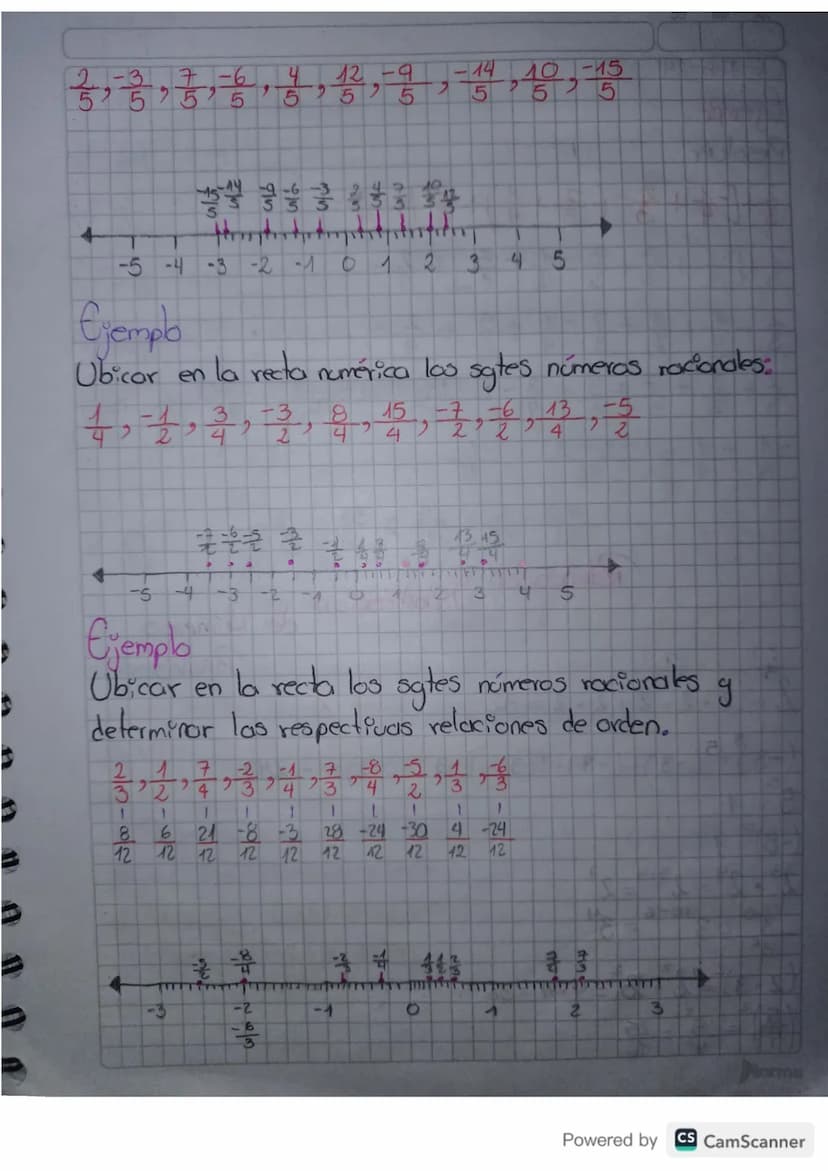 2/5, -3/5, 7/5, -6/5, 4/5, 12/5, -9/5, -14/5, 10/5, -15/5
-15/5 -14/5 -9/5 -6/5 -3/5 2/5 4/5 7/5 10/5 12/5
-5 -4 -3 -2 -1 0 1 2 3 4 5
Ejemplo
Ubicar en la recta numérica los sgtes números racionales:
1/4, -1/2, 3/4, -3/2, 8/4, 15/4, -7/2, -6/2, 13/4, -5/2
-7/2 -6/2 -5/2 -3/2 -1/2 1/4 3/4 8/4 13/4 15/4
-5 -4 -3 -2 -1 0 1 2 3 4 5
Ejemplo
Ubicar en la recta los sgtes números racionales y
determinar las respectivas relaciones de orden.
2/3, 1/2, 7/4, -2/3, -1/4, 7/3, -8/4, -5/2, 1/3, -6/3
8/12 6/12 21/12 -8/12 -3/12 28/12 -24/12 -30/12 4/12 -24/12
-5/2 -8/4 -2/3 -1/4 1/3 1/2 2/3 7/4 7/3
-3 -2 -1 0 1 2 3
-6/3
Norma
Powered by CS CamScanner